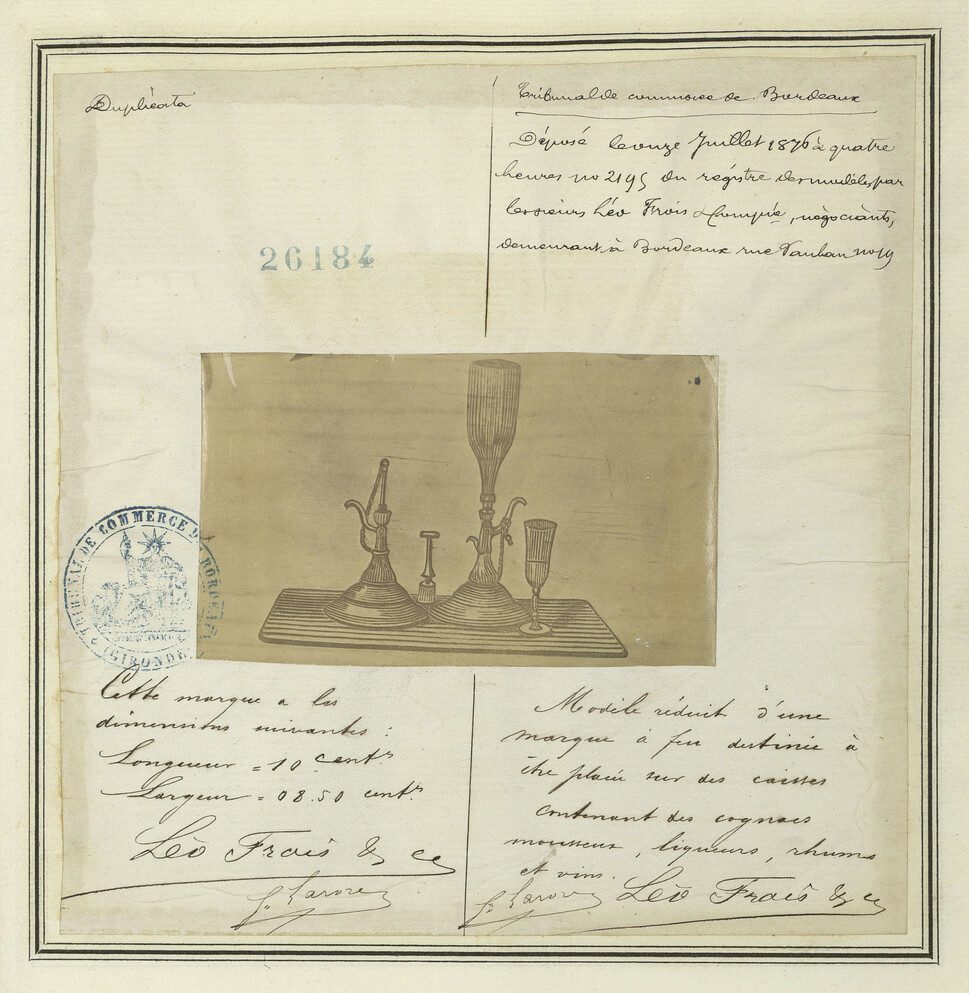 Duplicata
Tribunal de commerce de Bordeaux
Déposé le onze Juillet 1876 à quatre
heures no 2195 du régistre des modèles, par
les sieurs Léo Frois & Compie, négociants,
demeurant à Bordeaux rue Vauban no 19
26184
TRIBUNAL DE COMMERCE DE BORDEAUX
(GIRONDE)
Cette marque a les
dimensions suivantes :
Longueur = 10 centrs
Largeur = 08.50 centrs.
Léo Frois & Ce
Modèle réduit d'une
marque à feu destinée à
être placée sur des caisses
contenant des cognacs
mousseux, liqueurs, rhums
et vins.
Léo Frois & Ce